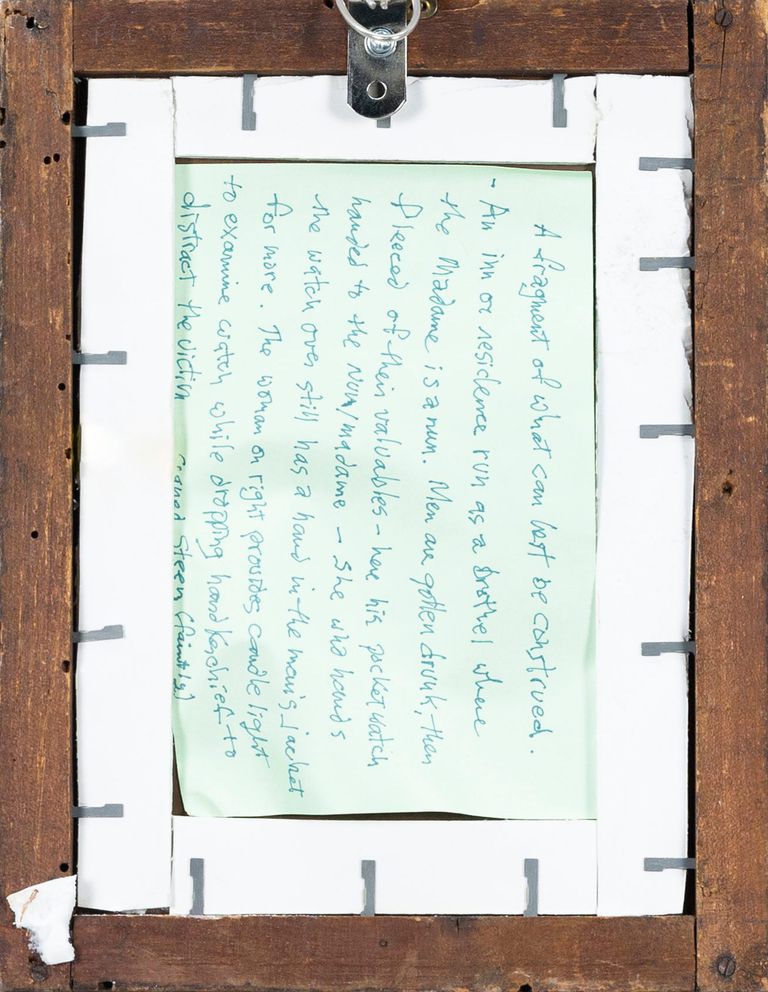 A fragment of what can best be construed.
- An inn or residence run as a Brothel where
the Madame is a nun. Men are gotten drunk, then
fleeced of their valuables - here his pocket watch
handed to the Nun/madame - She who hands
the watch over still has a hand in the man's jacket
for more. The woman on right provides candle light
to examine watch while dropping handkerchief to
distract the victim signed Steen (faintly)